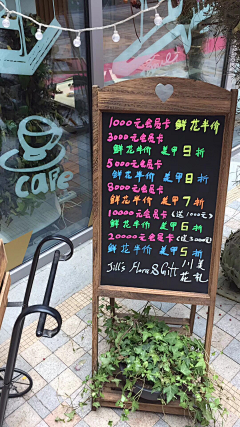 cafe
1000元会员卡 鲜花半价
3000元会员卡
鲜花半价 美甲9折
5000元会员卡
鲜花半价 美甲8折
8000元会员卡
鲜花半价 美甲7折
10000元会员卡(送1000元)
鲜花半价 美甲6折
20000元会员卡(送3000元)
鲜花半价 美甲5折
Jill's Flora & Gift 川美
花礼